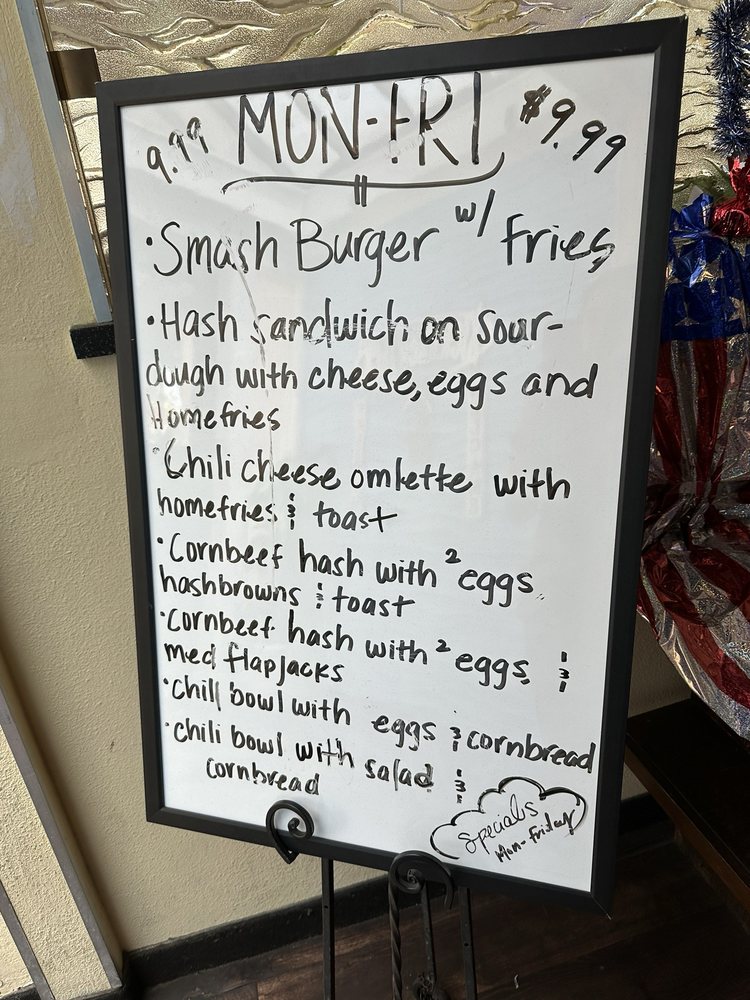 9.99 MON-FRI $9.99
• Smash Burger w/ fries
• Hash sandwich on sour-
dough with cheese, eggs and
Homefries
• Chili cheese omlette with
homefries & toast
• Cornbeef hash with 2 eggs
hashbrowns & toast
• Cornbeef hash with 2 eggs &
med flapjacks
• chili bowl with eggs & cornbread
• chili bowl with salad &
cornbread
Specials
Mon-Friday